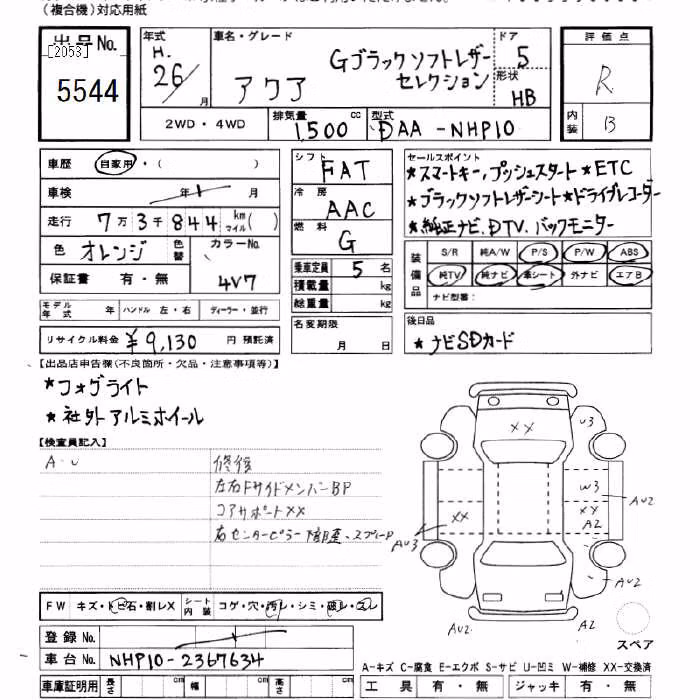 (複合機)対応用紙
出品No.
[2053]
5544
年式
H.
26/
月
車名・グレード
アクア
Gブラックソフトレザー
セレクション
ドア
5
形状
HB
評価点
R
内装
B
2WD・4WD
排気量
1,500
cc
型式
DAA-NHP10
車歴
自家用・(　　　)
車検
年
月
走行
7万3千844
km
マイル
(　)
色
オレンジ
色替
カラーNo.
4V7
保証書
有・無
モデル年式
年
ハンドル 左・右
ディーラー・並行
リサイクル料金
¥9,130
円 預託済
シフト
FAT
冷房
AAC
燃料
G
乗車定員
5
名
積載量
kg
総重量
kg
名変期限
月
日
セールスポイント
★スマートキー,プッシュスタート★ETC
★ブラックソフトレザーシート★ドライブレコーダー
★純正ナビ,DTV,バックモニター
装備品
S/R
純A/W
P/S
P/W
ABS
純TV
純ナビ
革シート
外ナビ
エアB
ナビ型番:
後日品
★ナビSDカード
【出品店申告欄(不良箇所・欠品・注意事項等)】
★フォグライト
★社外アルミホイール
【検査員記入】
A・U
修復
左右FサイドメンバーBP
コアサポートXX
右センターピラー
XX
U3
W3
AU2
XX
A2
XX
AU3
AU2
AU2
A2
FW キズ・トビ石・割レX
シート内装
コゲ・穴・汚レ・シミ・破レ・スレ
登録No.
車台No.
NHP10-2367634
スペア
A-キズ C-腐食 E-エクボ S-サビ U-凹ミ W-補修 XX-交換済
車庫証明用
長さ
cm
幅
cm
高さ
cm
工具
有・無
ジャッキ
有・無